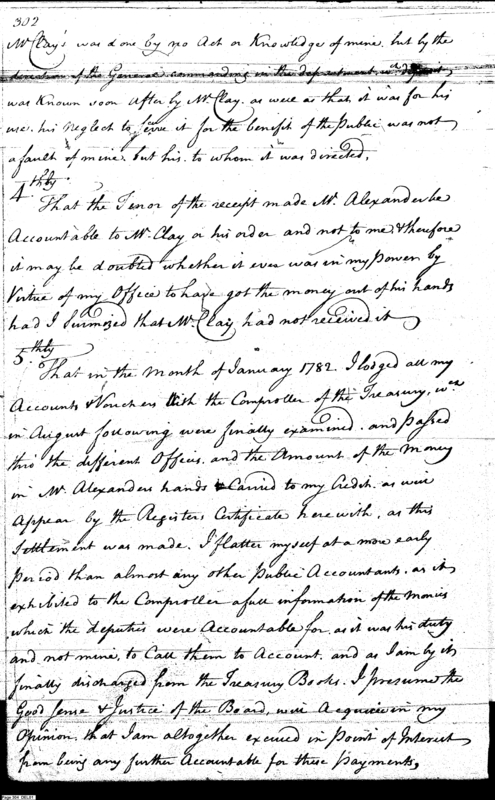 302
Mr Clay's was done by no Act or Knowledge of mine, but by the
direction of the General commanding in the department,
was Known soon after by Mr Clay, as were as that it was for his
use, his neglect to secure it for the benefit of the Public was not
a fault of mine, but his to whom it was directed,
4thly
That the Tenor of the receipt made Mr Alexander be
Accountable to Mr Clay or his order and not to me & therefore
it may be doubted whether it ever was in my Power by
Virtue of my Office to have got the money out of his hands
had I Surmized that Mr Clay had not received it
5thly
That in the Month of January 1782. I lodged all my
Accounts & Vouchers With the Comptroller of the Treasury, wch
in August following were finally examined, and Passed
thro' the different Offices, and the Amount of the Money
in Mr Alexanders hands Carried to my Credit, as will
Appear by the Registers Certificate herewith, as this
Settlement was made, I flatter myself at a more early
Period than almost any other Public Accountants, as it
exhibited to the Comptroller a full information of the Monies
which the deputies were Accountable for, as it was his duty
and not mine, to Call them to Account, and as I am by it
finally discharged from the Treasury Books, I presume the
Good Sense & Justice of the Board, will Acquiesce in my
Opinion, that I am altogether excused in Point of Interest
from being any further Accountable for these Payments,